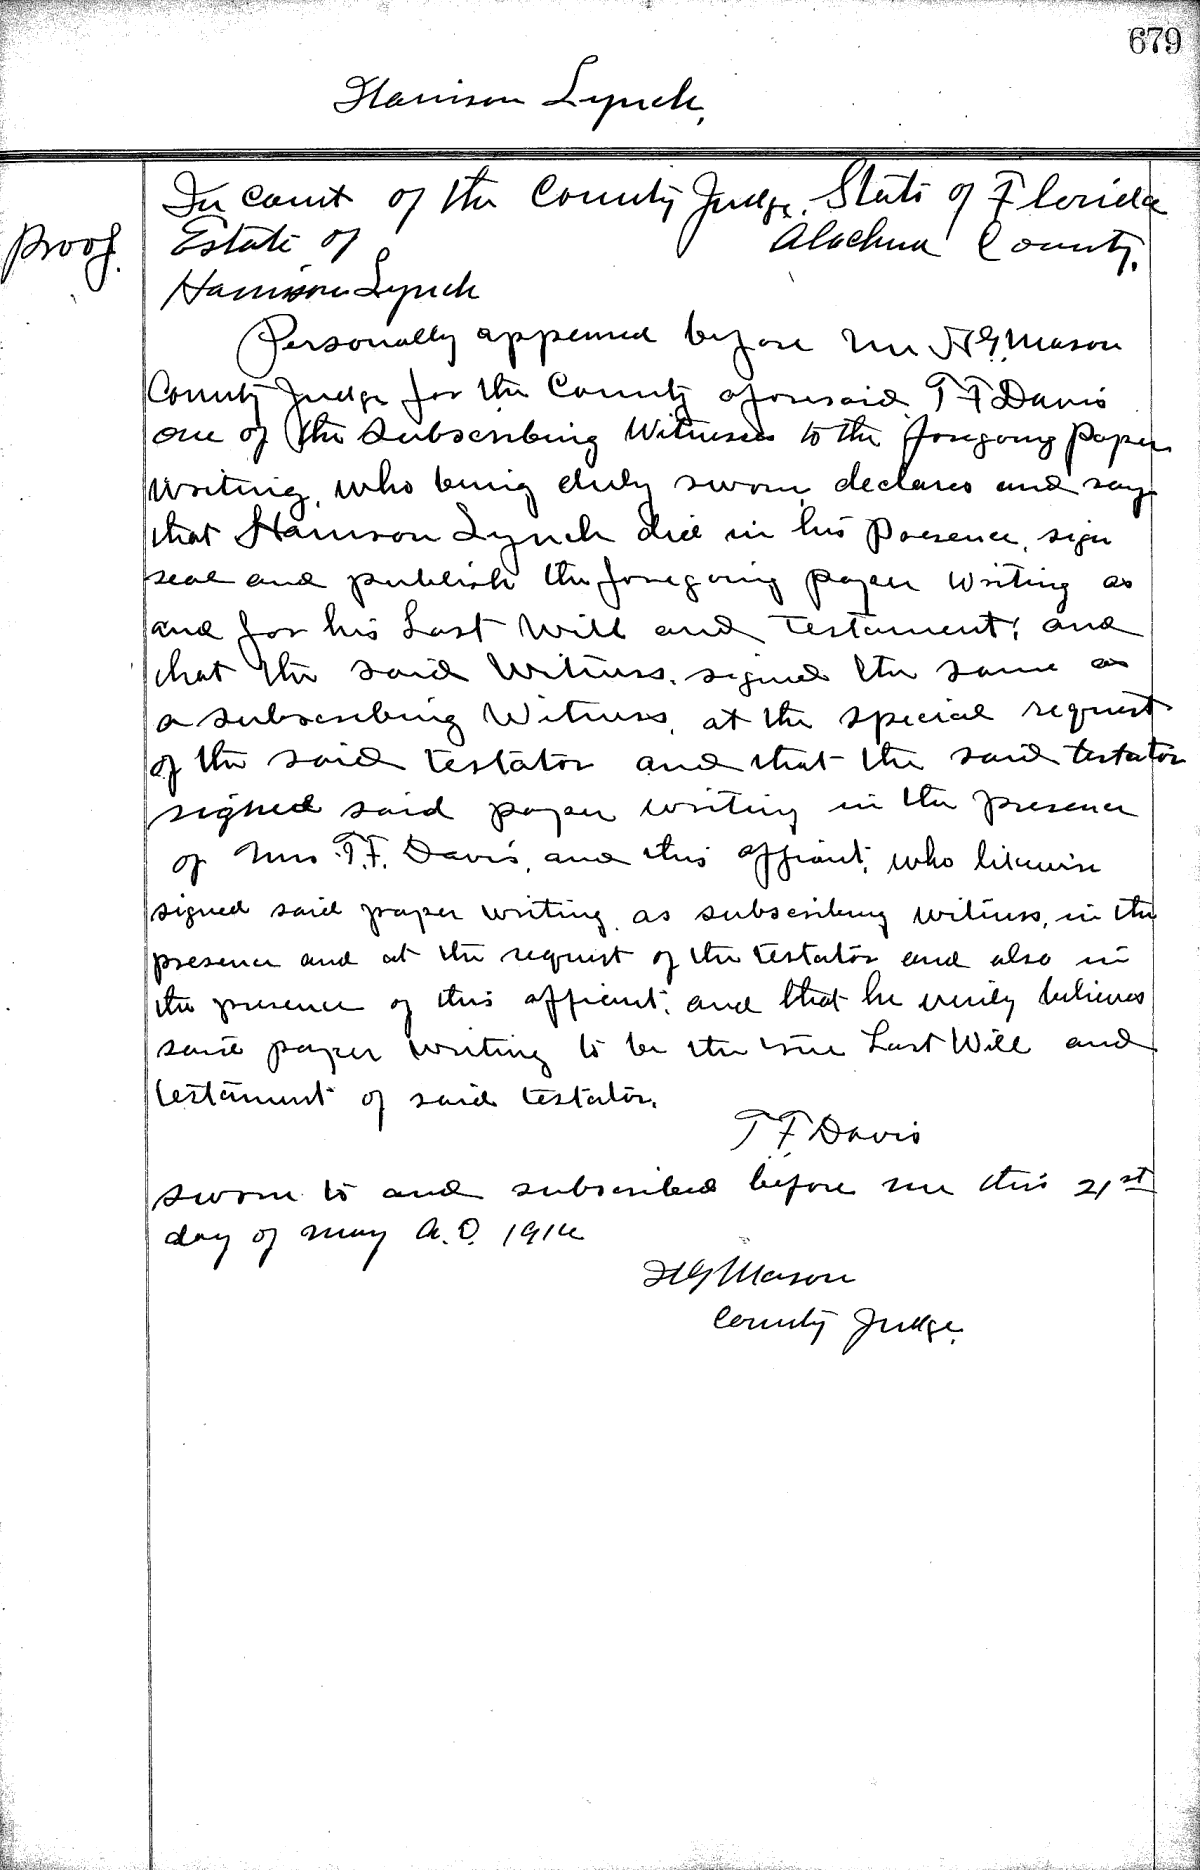 679
Harrison Lynch,
In Court of the County Judge, State of Florida
Proof. Estate of Alachua County,
Harrison Lynch
Personally appeared before me H.G. Mason
County Judge for the County aforesaid T F Davis
one of the subscribing Witnesses to the foregoing paper
writing, who being duly sworn, declares and says
that Harrison Lynch did in his presence, sign
seal and publish the foregoing paper writing as
and for his Last Will and testament; and
that the said Witness, signed the same as
a subscribing Witness, at the special request
of the said testator and that the said testator
signed said paper writing in the presence
of Mrs. T.F. Davis, and this affiant, who likewise
signed said paper writing as subscribing witness, in the
presence and at the request of the testator and also in
the presence of this affiant; and that he verily believes
said paper writing to be the true Last Will and
testament of said testator.
T F Davis
sworn to and subscribed before me this 21st
day of may A.D. 1914
H G Mason
County Judge.